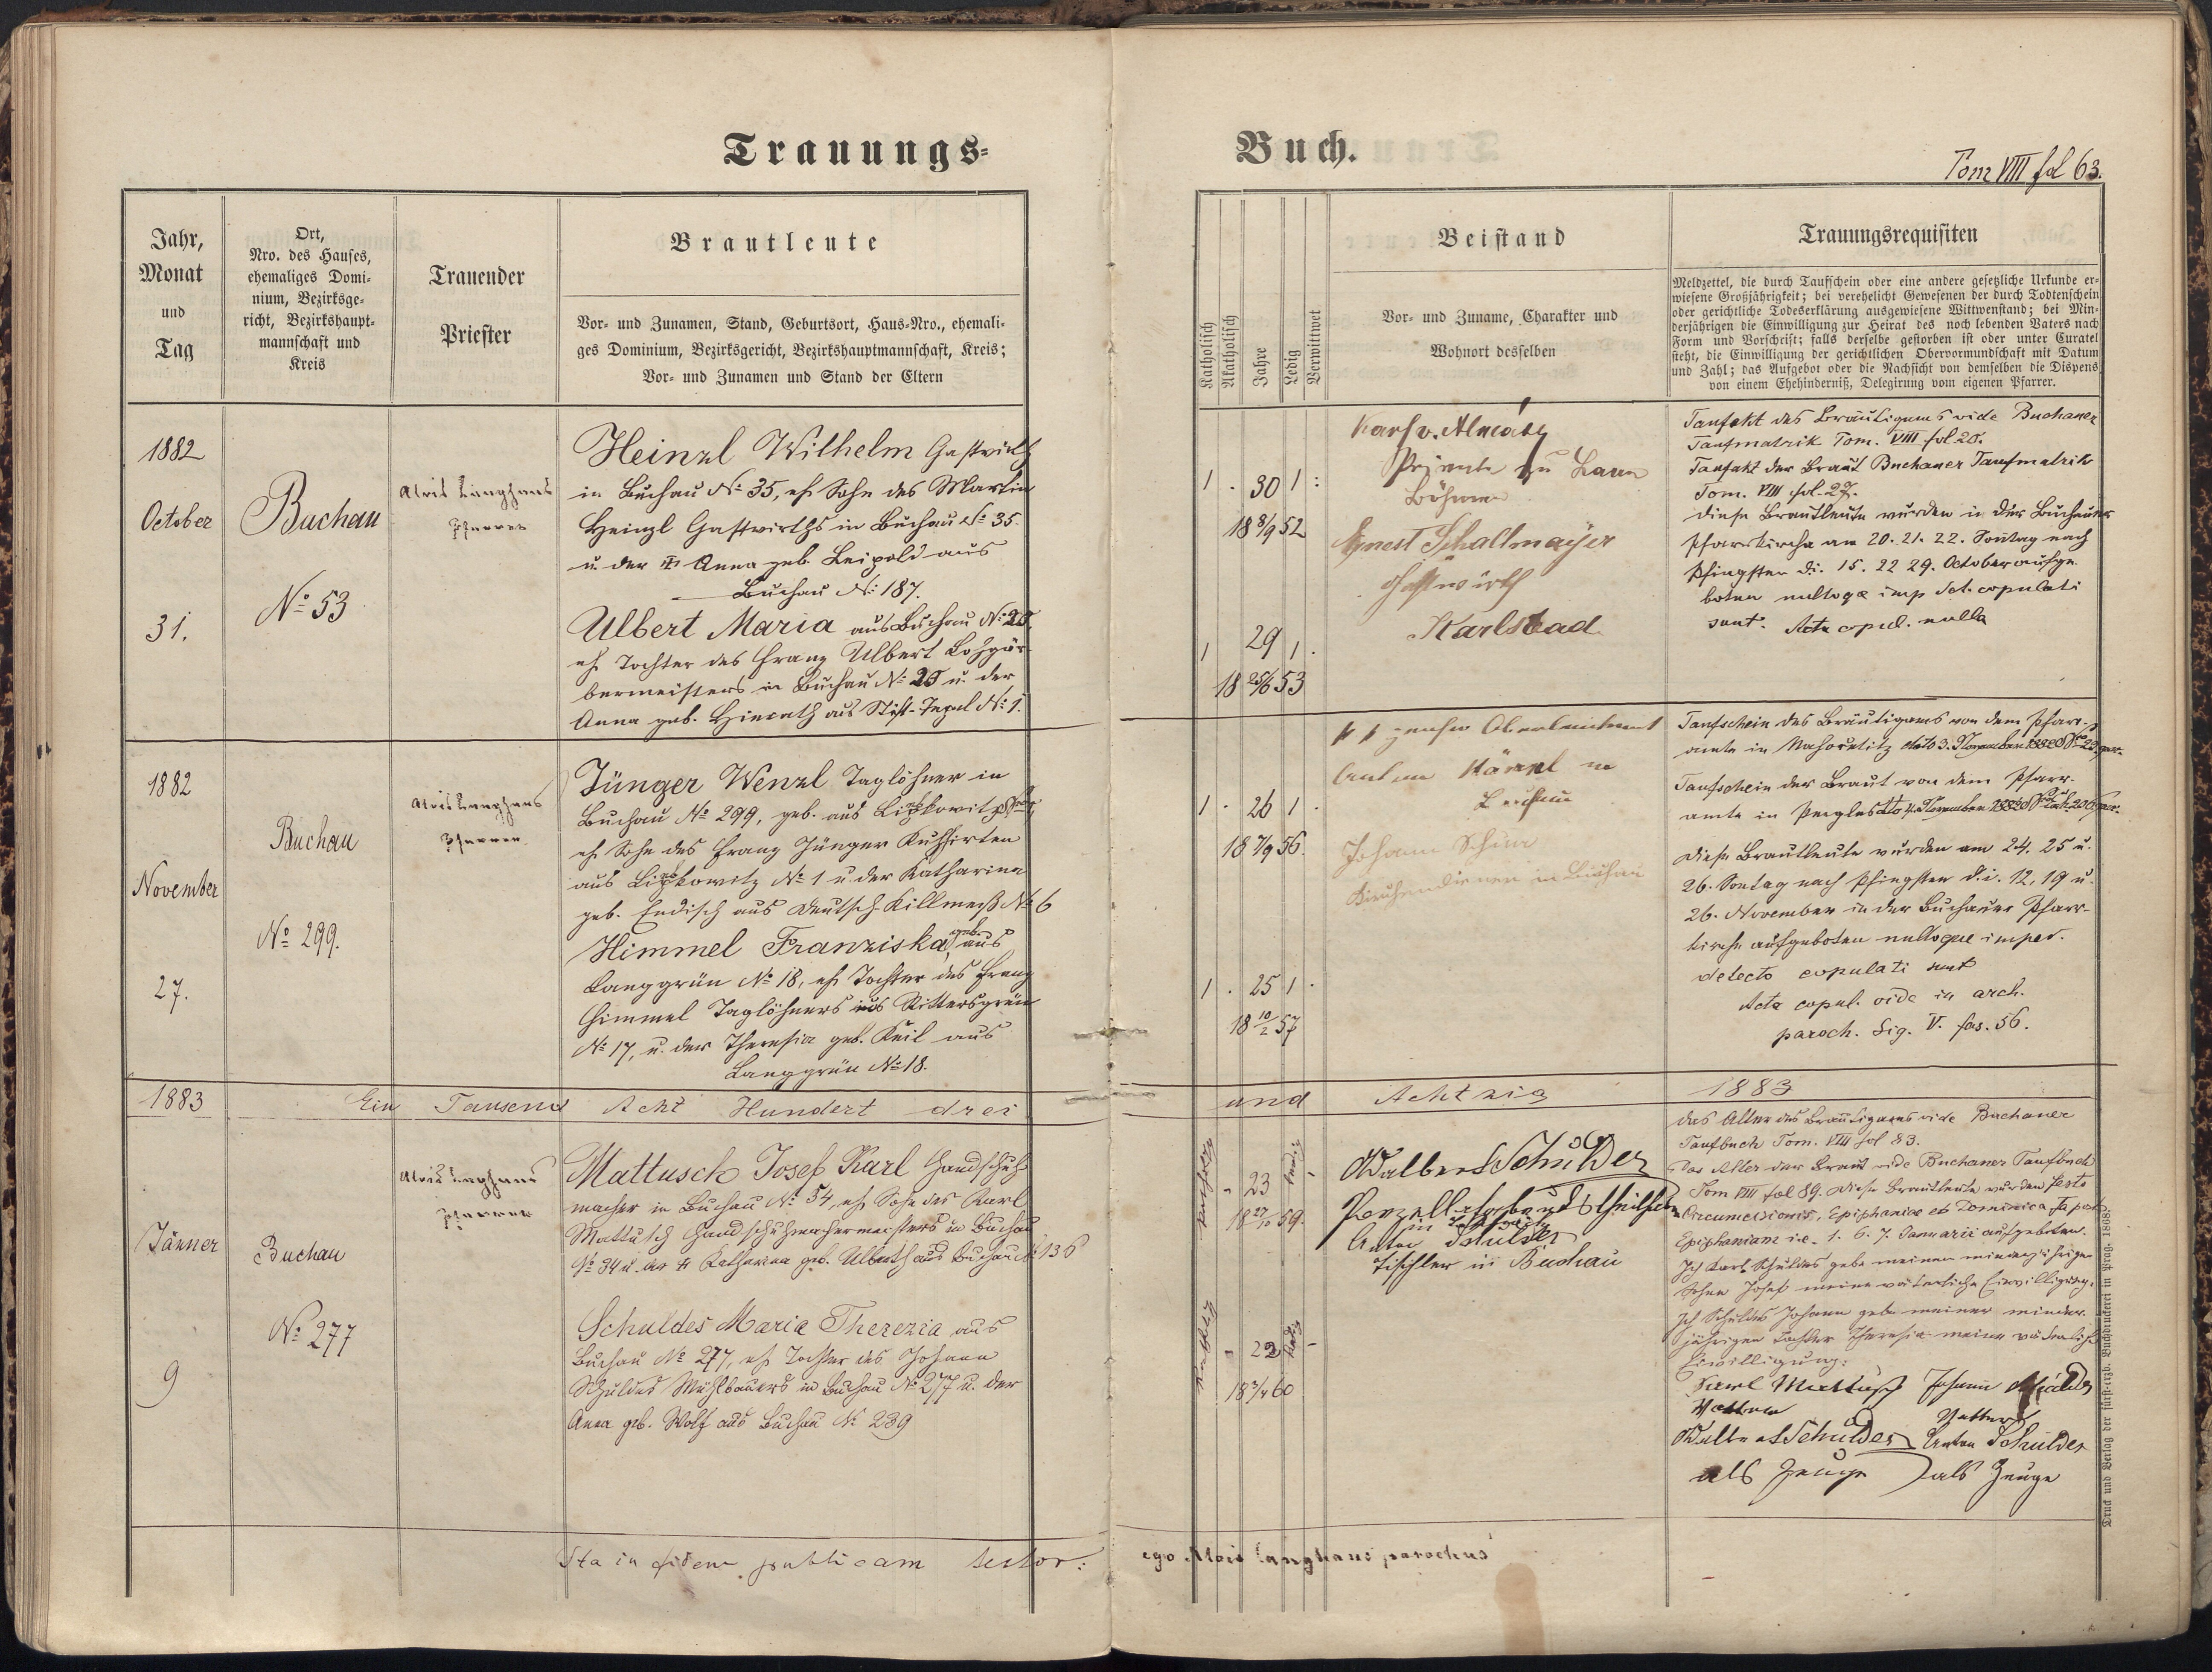 Trauungs-
Buch.
Tom VIII fol 63.
Jahr,
Monat
und
Tag
Ort,
Nro. des Hauses,
ehemaliges Domi-
nium, Bezirksge-
richt, Bezirkshaupt-
mannschaft und
Kreis
Trauender
Priester
Brautleute
Vor- und Zunamen, Stand, Geburtsort, Haus-Nro., ehemali-
ges Dominium, Bezirksgericht, Bezirkshauptmannschaft, Kreis;
Vor- und Zunamen und Stand der Eltern
Katholisch
Akatholisch
Jahre
Ledig
Verwittwet
Beistand
Vor- und Zuname, Charakter und
Wohnort desselben
Trauungsrequisiten
Meldzettel, die durch Taufschein oder eine andere gesetzliche Urkunde er-
wiesene Großjährigkeit; bei verehelicht Gewesenen der durch Todtenschein
oder gerichtliche Todeserklärung ausgewiesene Wittwenstand; bei Min-
derjährigen die Einwilligung zur Heirat des noch lebenden Vaters nach
Form und Vorschrift; falls derselbe gestorben ist oder unter Curatel
steht, die Einwilligung der gerichtlichen Obervormundschaft mit Datum
und Zahl; das Aufgebot oder die Nachsicht von demselben die Dispens
von einem Ehehinderniß, Delegirung vom eigenen Pfarrer.
1882
October
31.
Buchau
No 53
Alois Langhans
Pfarrer
Heinzl Wilhelm Gastwirth
in Buchau No 35, eh. Sohn des Martin
Heinzl Gastwirths in Buchau No 35.
u. der Anna geb. Leipold aus
Buchau No: 187.
Ulbert Maria aus Buchau No: 20,
eh. Tochter des Franz Ulbert Lohgär-
bermeisters in Buchau No: 20 u. der
Anna geb. aus Stift-Tepel No: 1.
1 . 30 1 :
18 8/9 52
1 29 1 .
18 25/6 53
Karl v.
zu
Böhmen
Ernest Schallmayer
Gastwirth
Karlsbad
Taufakt des Bräutigams vide Buchauer
Taufmatrik Tom. VIII fol. 20.
Taufakt der Braut Buchauer Taufmatrik
Tom. VIII fol. 27.
Diese Brautleute wurden in der Buchauer
Pfarrkirche am 20. 21. 22. Sontag nach
Pfingsten d.i. 15. 22 29. October aufge-
boten nulloque imp. det. copulati
sunt. Acta copul. nulla
1882
November
27.
Buchau
No 299.
Alois Langhans
Pfarrer
Jünger Wenzl Taglöhner in
Buchau No 299, geb. aus
eh. Sohn des Franz Jünger Kuhhirten
aus No 1 u. der Katharina
geb. Endisch aus Deutsch-Killmeß No 6
Himmel Franziska, geb. aus
Langgrün No 18, eh. Tochter des Franz
Himmel Taglöhners aus Rittersgrün
No 17, u. der Theresia geb. Keil aus
Langgrün No 18.
1 . 26 1 .
18 7/9 56.
1 . 25 1 .
18 10/2 57
k k Oberlieutenant
Johann
Kirchendiener in Buchau
Taufschein des Bräutigams von dem Pfarr-
amte in dto 3. November 1882
Taufschein der Braut von dem Pfarr-
amte in Pergles dto 4. November 1882
Diese Brautleute wurden am 24. 25 u.
26. Sontag nach Pfingsten d.i. 12, 19 u.
26. November in der Buchauer Pfarr-
kirche aufgeboten nulloque imped.
detecto copulati sunt
Acta copul. vide in arch.
paroch. Sig. V. fas. 56.
1883 Ein Tausend Acht Hundert drei und Achtzig 1883
Jänner
9
Buchau
No 277
Alois Langhans
Pfarrer
Mattusch Josef Karl Handschuh-
macher in Buchau No 34, eh. Sohn des Karl
Mattusch Handschuhmachermeisters in Buchau
No 34 u. der Katharina geb. Ulberth aus Buchau No 136
Schuldes Maria Therezia aus
Buchau No 277, eh. Tochter des Johann
Schuldes Mühlbauers in Buchau No 277 u. der
Anna geb. Wolf aus Buchau No 239
katholisch
- 23 ledig -
18 27/10 59.
katholisch
- 22 ledig -
18 3/4 60
Schuldes
in
Anton Schuldes
Tischler in Buchau
Das Alter des Bräutigams vide Buchauer
Taufbuch Tom. VIII fol 83.
Das Alter der Braut vide Buchauer Taufbuch
Tom VIII fol 89. Diese Brautleute wurden Festo
Circumcisionis, Epiphaniae et Dominica Ia post
Epiphaniam i.e. 1. 6. 7. Januarii aufgeboten.
Ich Karl gebe meinem minderjährigen
Sohne Josef meine väterliche Einwilligung.
Ich Schuldes Johann gebe meiner minder-
jährigen Tochter Theresia meine väterliche
Einwilligung:
Karl Mattusch Johann
Vatter Vatter
Schuldes Anton Schuldes
als Zeuge als Zeuge
Ita in fidem publicam testor: ego Alois Langhans parochus
Druck und Verlag der fürst-erzb. Buchdruckerei in Prag. 1868.